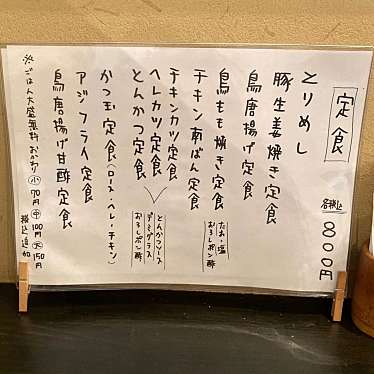 定食
各税込
800円
とりめし
豚生姜焼き定食
鳥唐揚げ定食
鳥もも焼き定食
たれ・塩
おろしポン酢
チキン南ばん定食
チキンカツ定食
ヘレカツ定食
とんかつ定食
とんかつソース
デミグラス
おろしポン酢
かつ玉定食(ロース・ヘレ・チキン)
アジフライ定食
鳥唐揚げ甘酢定食
※ごはん大盛無料 おかわり 小70円 中100円 大150円
税込 追加